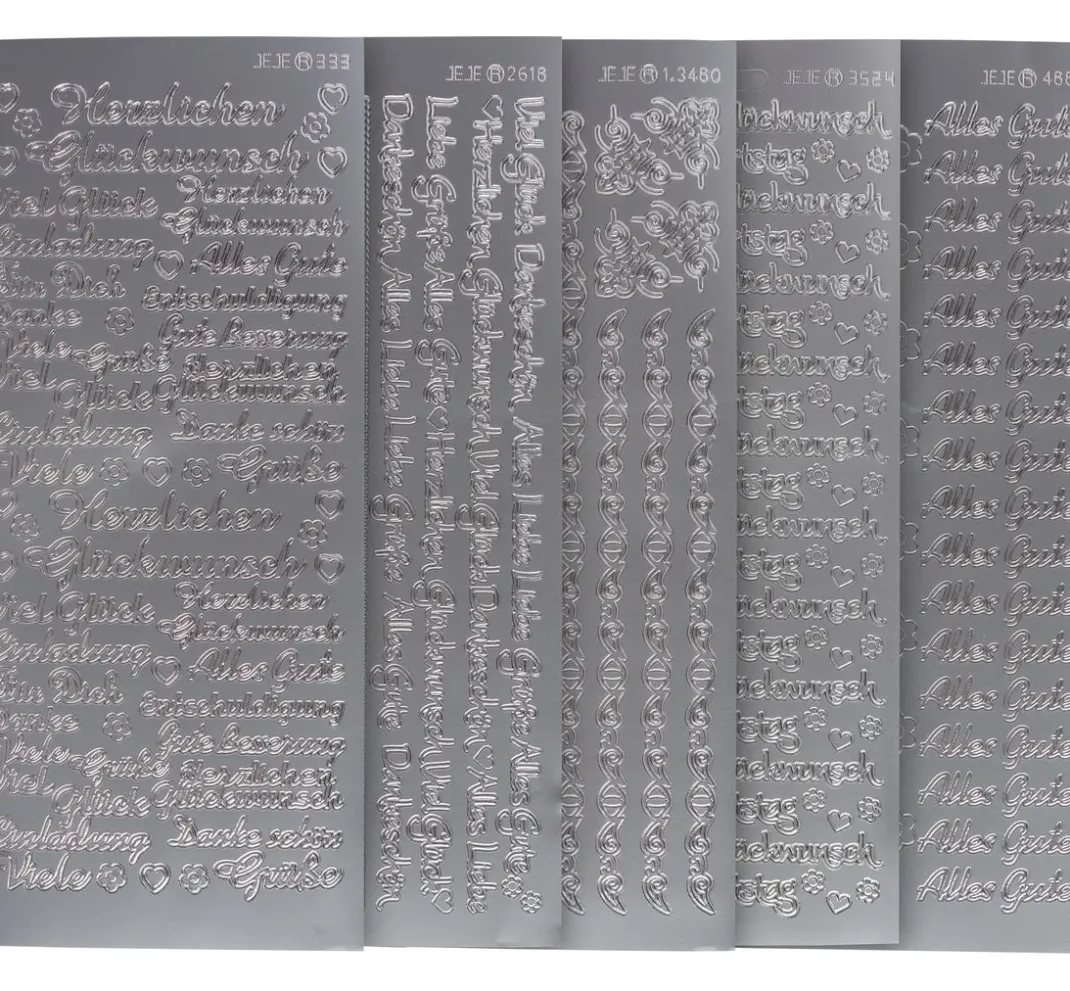 JEJE® 333
Herzlichen
Glückwunsch
Viel Glück Herzlichen
Glückwunsch
Einladung Alles Gute
Für Dich Entschuldigung
Danke Gute Besserung
Viele Grüße Herzlichen
Viel Glück Glückwunsch
Einladung Danke schön
Viele Grüße
Herzlichen
Glückwunsch
Viel Glück Herzlichen
Glückwunsch
Einladung Alles Gute
Für Dich Entschuldigung
Danke Gute Besserung
Viele Grüße Herzlichen
Viel Glück Glückwunsch
Einladung Danke schön
Viele Grüße
JEJE® 2618
Viel Glück Dankeschön Alles Liebe Liebe Grüße Alles Gute
Herzlichen Glückwunsch Viel Glück Dankeschön Alles Liebe
Liebe Grüße Alles Gute Herzlichen Glückwunsch Viel Glück
Dankeschön Alles Liebe Liebe Grüße Alles Gute Dankeschön
JEJE® 1.3480
JEJE® 3524
ückwunsch
tstag
ückwunsch
tstag
ückwunsch
tstag
ückwunsch
tstag
ückwunsch
tstag
ückwunsch
tstag
ückwunsch
tstag
ückwunsch
tstag
ückwunsch
tstag
ückwunsch
tstag
JEJE® 488
Alles Gute
Alles Gute
Alles Gute
Alles Gute
Alles Gute
Alles Gute
Alles Gute
Alles Gute
Alles Gute
Alles Gute
Alles Gute
Alles Gute
Alles Gute
Alles Gute
Alles Gute
Alles Gute
Alles Gute